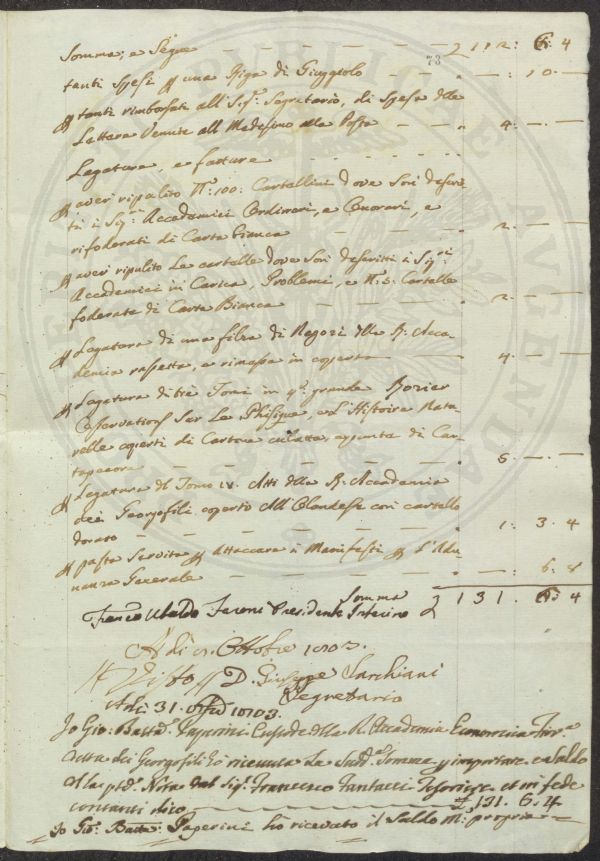 Somma, e Segue — — — — — £ 112: 6: 4
73
tanti Spesi p una Riga di Giuggiolo — — — : 10. —
p tanti rimborsati all Sigr. Segretario, di Spese delle
Lettere Venute all Medesimo alla Posta — — 4. — . —
Legature, e fatture — — — —
p aver ripulito No. 100: Cartellini dove Son descrit-
ti i Sigri. Accademici Ordinari, e Onorari, e
rifoderati di Carta bianca — — — 2. — . —
p aver ripulito Le cartelle dove Son descritti i Sigri.
Accademici in Carica, Problemi, e No. 5: Cartelle
foderate di Carta Bianca — — — 2. — . —
p Legatura di una filza di Negozi della R. Acca-
demia rassetta, e rimessa in coperta — — 4. — . —
p Legatura di tre Tomi in 4o. grande Rozier
Observations Sur La Phisique, e L'Histoire Natu-
relle coperti di Cartone colle di Car-
tapecora — — — — 5. — . —
p Legatura del Tomo IV. Atti della R. Accademia
dei Georgofili coperto All'Olandese con cartello
dorato — — — — 1: 3. 4
p pasta Servita p Attaccare i Manifesti p L'Adu-
nanza Generale — — — — : 6. 8
Somma £ 131. 6: 4
Franco Ubaldo Feroni Presidente Interino
A di Ottobre 1803.
Visto p D. Giuseppe Sarchiani
Segretario
A di 31. Ottbre 1803.
Io Gio: Battta. Paperini Custode della R. Accademia Economica Fior.a
detta dei Georgofili ho ricevuto La Sudda. Somma p importare, e Saldo
del Sigr. Francesco Fantacci Tesoriere et in fede
contanti dico — — — £ 131. 6. 4
Io Gio: Batta: Paperini ho ricevuto il Saldo Mo. propria